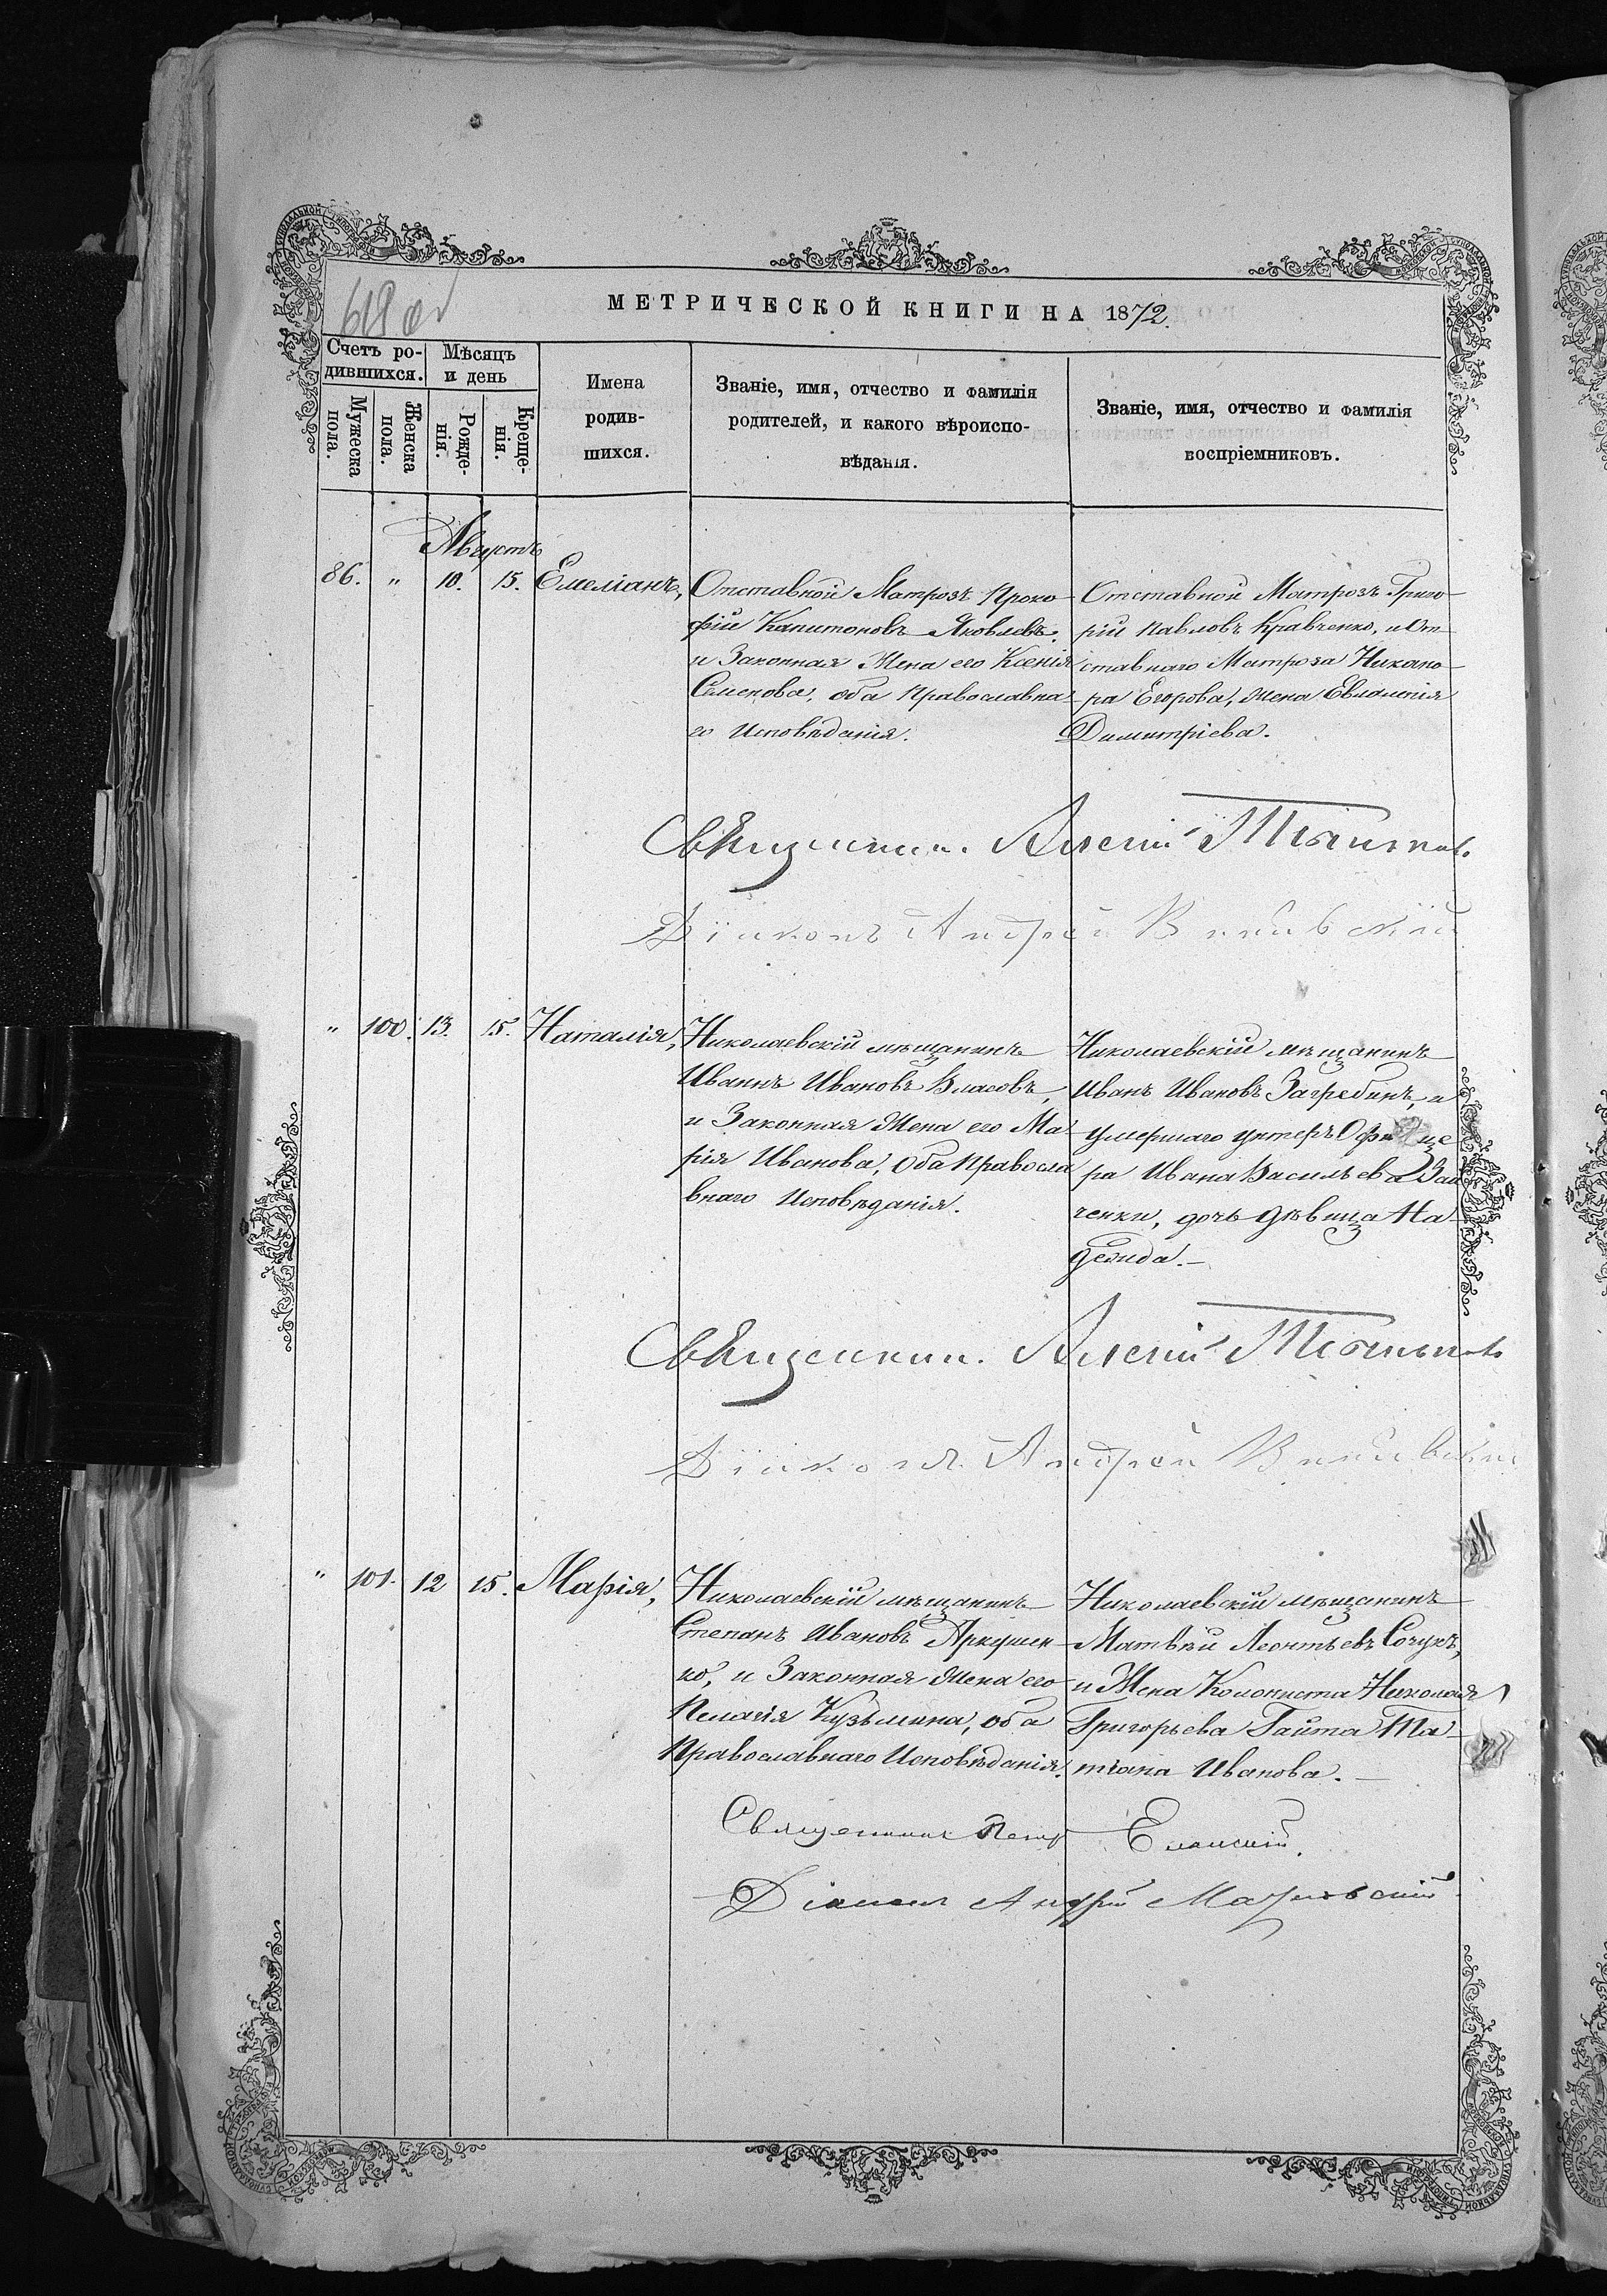 619 об
МЕТРИЧЕСКОЙ КНИГИ НА 1872.
Счетъ ро-
дившихся.
Мѣсяцъ
и день
Мужеска
пола.
Женска
пола.
Рожде-
нія.
Креще-
нія.
Имена
родив-
шихся.
Званіе, имя, отчество и фамилія
родителей, и какого вѣроиспо-
вѣданія.
Званіе, имя, отчество и фамилія
воспріемниковъ.
Августъ
86. " 10. 15. Емеліанъ,
Отставной Матрозъ Проко-
фій Капитоновъ Яковлевъ.
и Законная Жена его Ксенія
Семенова, оба Православна-
го Исповѣданія.
Отставной Матрозъ Григо-
рій Павловъ Кравченко, и От-
ставнаго Матроза Никано-
ра Егорова, Жена Евлампія
Димитріева.
Священник. Алексій
Діаконъ Андрей
" 100. 13. 15. Наталія,
Николаевскій мѣщанинъ
Иванъ Ивановъ Власовъ,
и Законная Жена его Ма-
рія Иванова, Оба Правосла
внаго Исповѣданія.
Николаевскій мѣщанинъ
Иванъ Ивановъ Загребинъ, и
умершаго унтеръ Офице
ра Ивана Васильева Зай
ченки, дочь дѣвица На-
дежда.-
Священник. Алексій
Діаконъ Андрей
" 101. 12 15. Марія,
Николаевскій мѣщанинъ
Степанъ Ивановъ Аркушен-
ко, и Законная Жена его
Пелагія Кузьмина, оба
Православнаго Исповѣданія.
Николаевскій мѣщанинъ
Матвѣй Леонтьевъ Сочукъ,
и Жена Колониста Николая
Григорьева Гайта Та-
тіана Иванова.-
Священник Петр Еланский.
Діаконъ Андрей